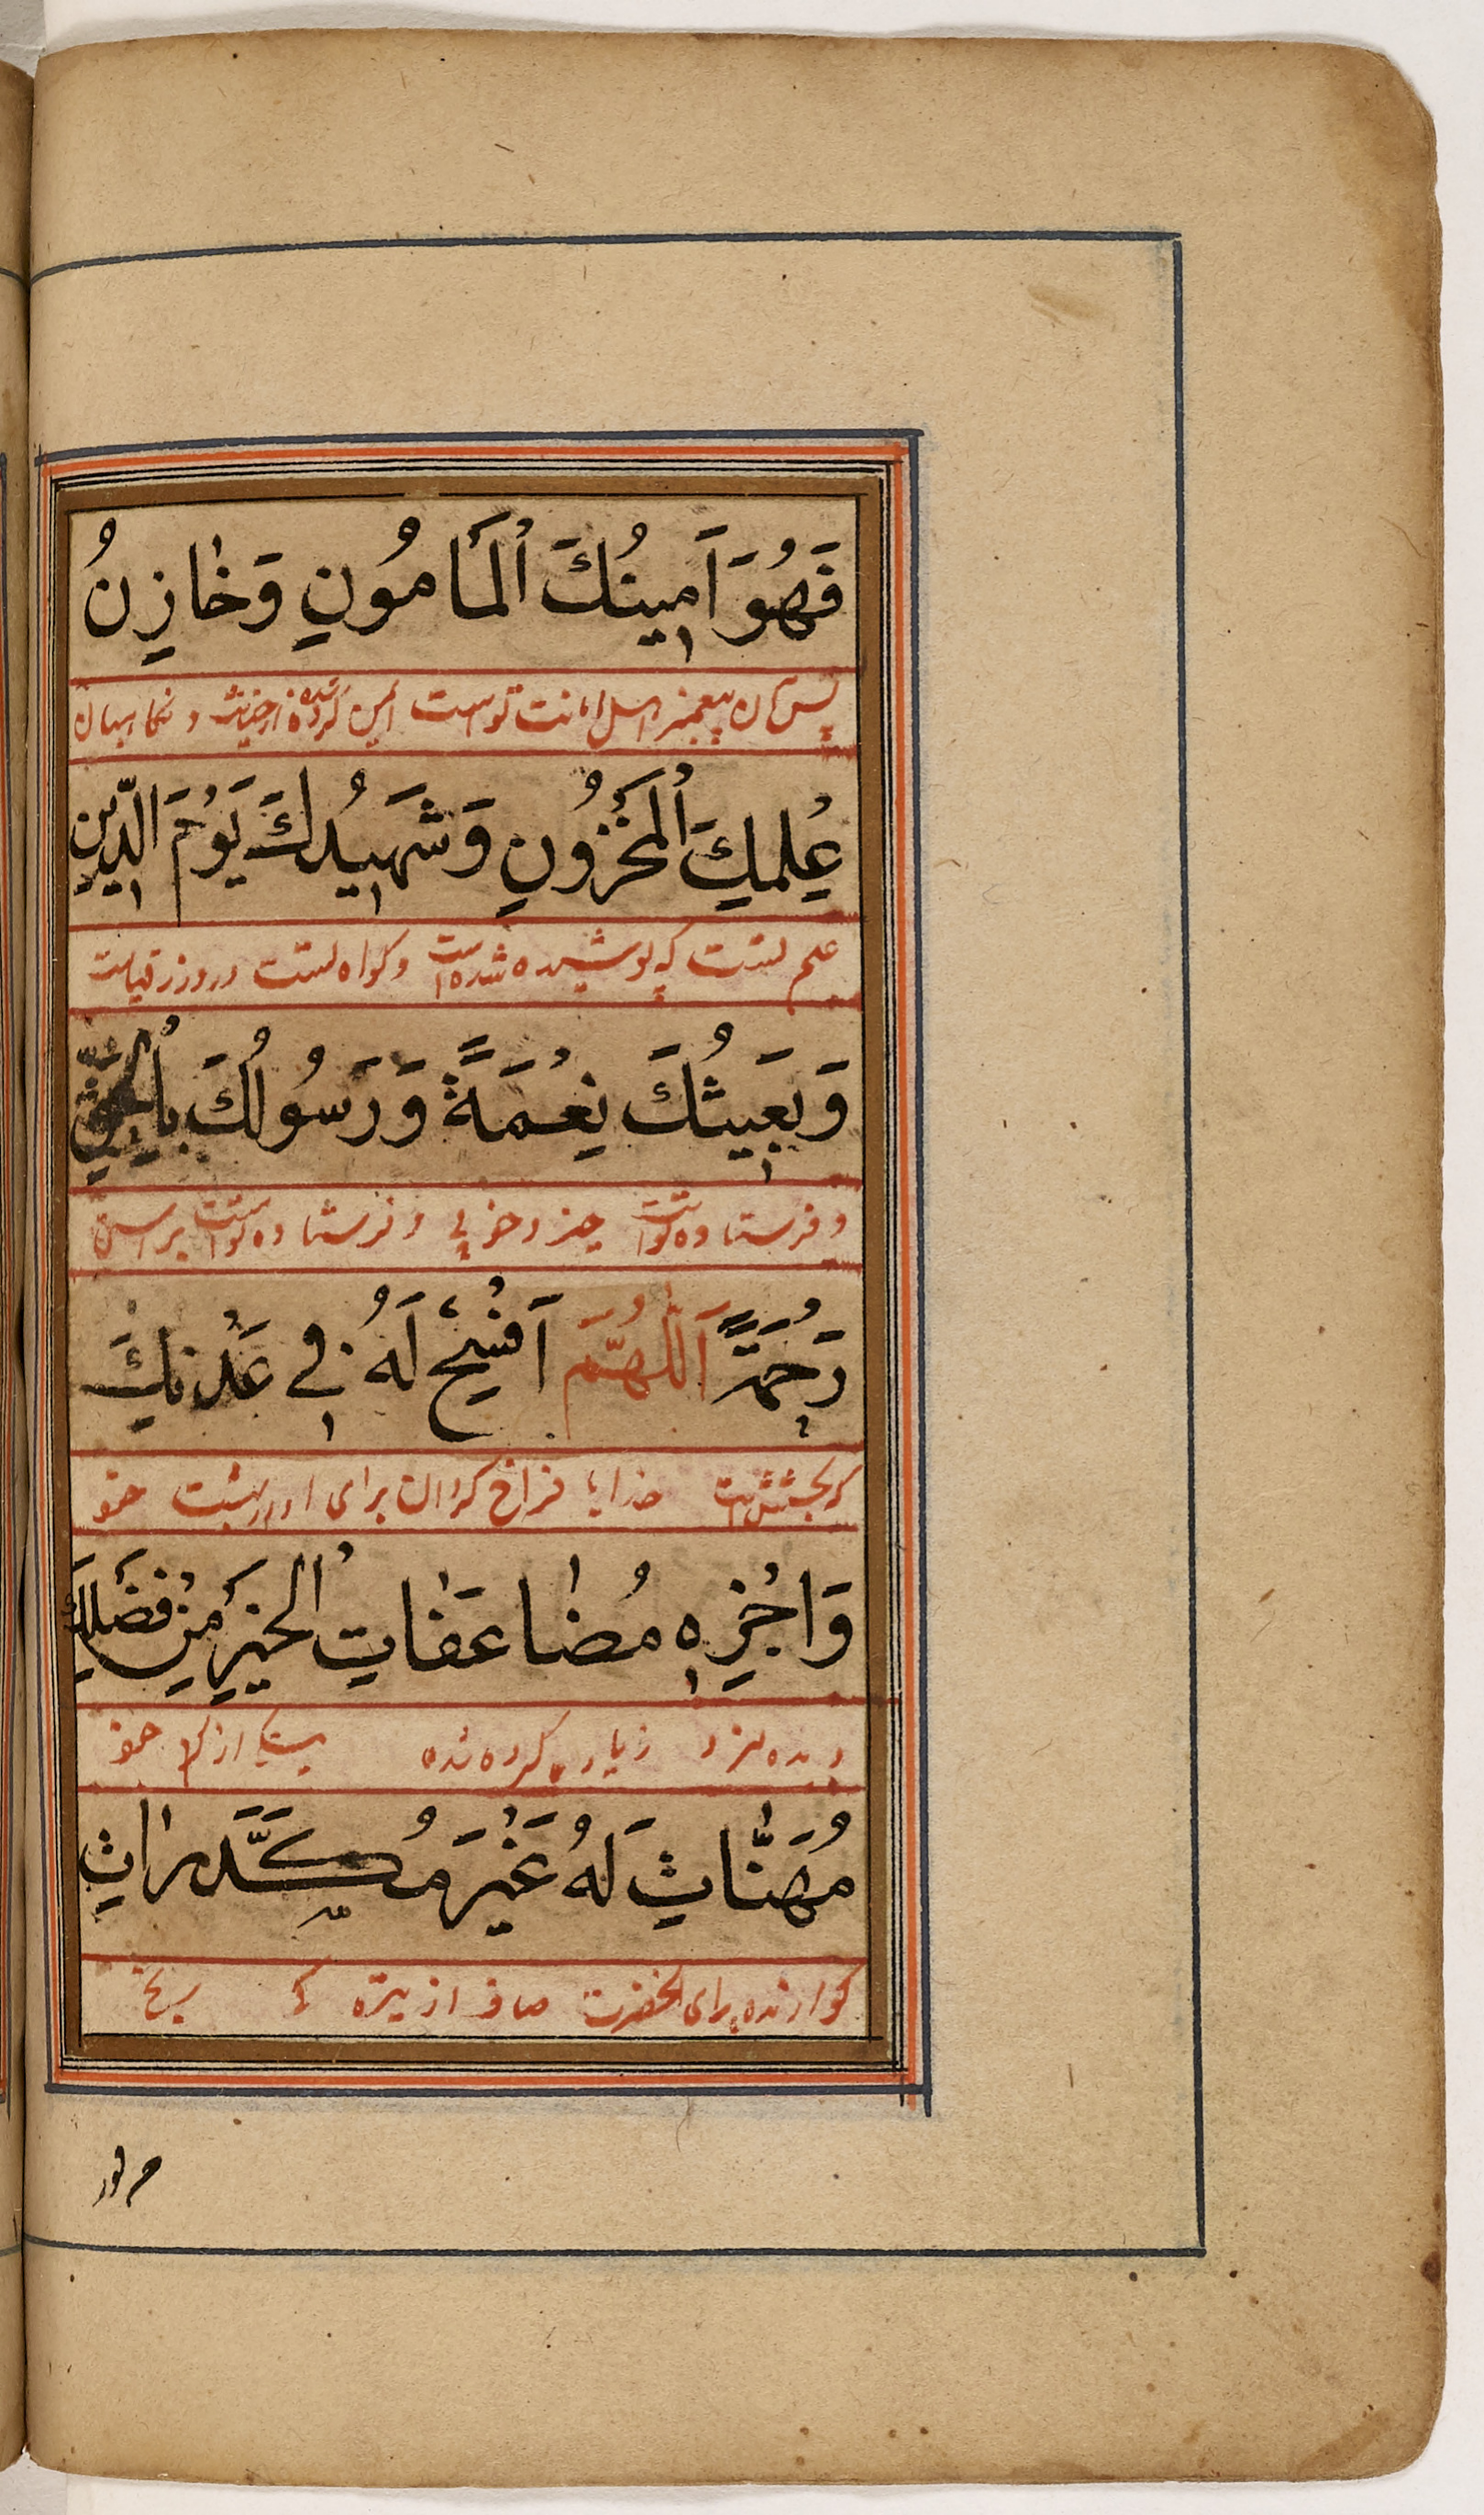 فَهُوَ اَمِينُكَ الْمَأمُونِ وَخَازِنُ
پس آن پیغمبر اهل امانت تو است امین کرده شده از خیانت و نگاهبان
عِلْمِكَ الْمَخْزُونِ وَشَهِيدُكَ يَوْمَ الدِّينِ
علم تست که پوشیده شده است و کواه تست در روز قیامت
وَبَعِيثُكَ نِعْمَةً وَرَسُولُكَ بِالْحَقِّ
و فرستاده تو است چیز و خوبی و فرستاده تو است براستی
رَحْمَةً اَللّٰهُمَّ اَفْسِحْ لَهُ فِي عَدْنِكَ
که بخشش است خدایا فراخ کردان برای او در بهشت خود
وَاجْزِهِ مُضَاعَفَاتِ الْخَيْرِ مِنْ فَضْلِكَ
و بده مزد زیاد کرده شده از کرم خود
مُهَنَّاتٍ لَهُ غَيْرَ مُكَدَّرَاتٍ
کوارنده برای آنحضرت صاف از تیره کی